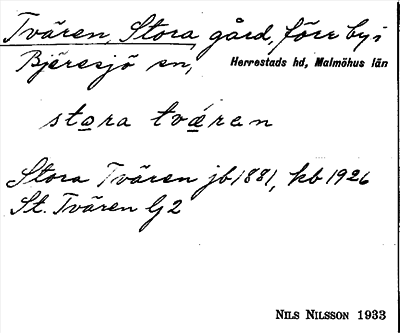 Tvären, Stora gård, förr by i
Bjäresjö sn, Herrestads hd, Malmöhus län
stora tvären
Stora Tvären jb 1881, kb 1926
St. Tvären Gj 2
NILS NILSSON 1933